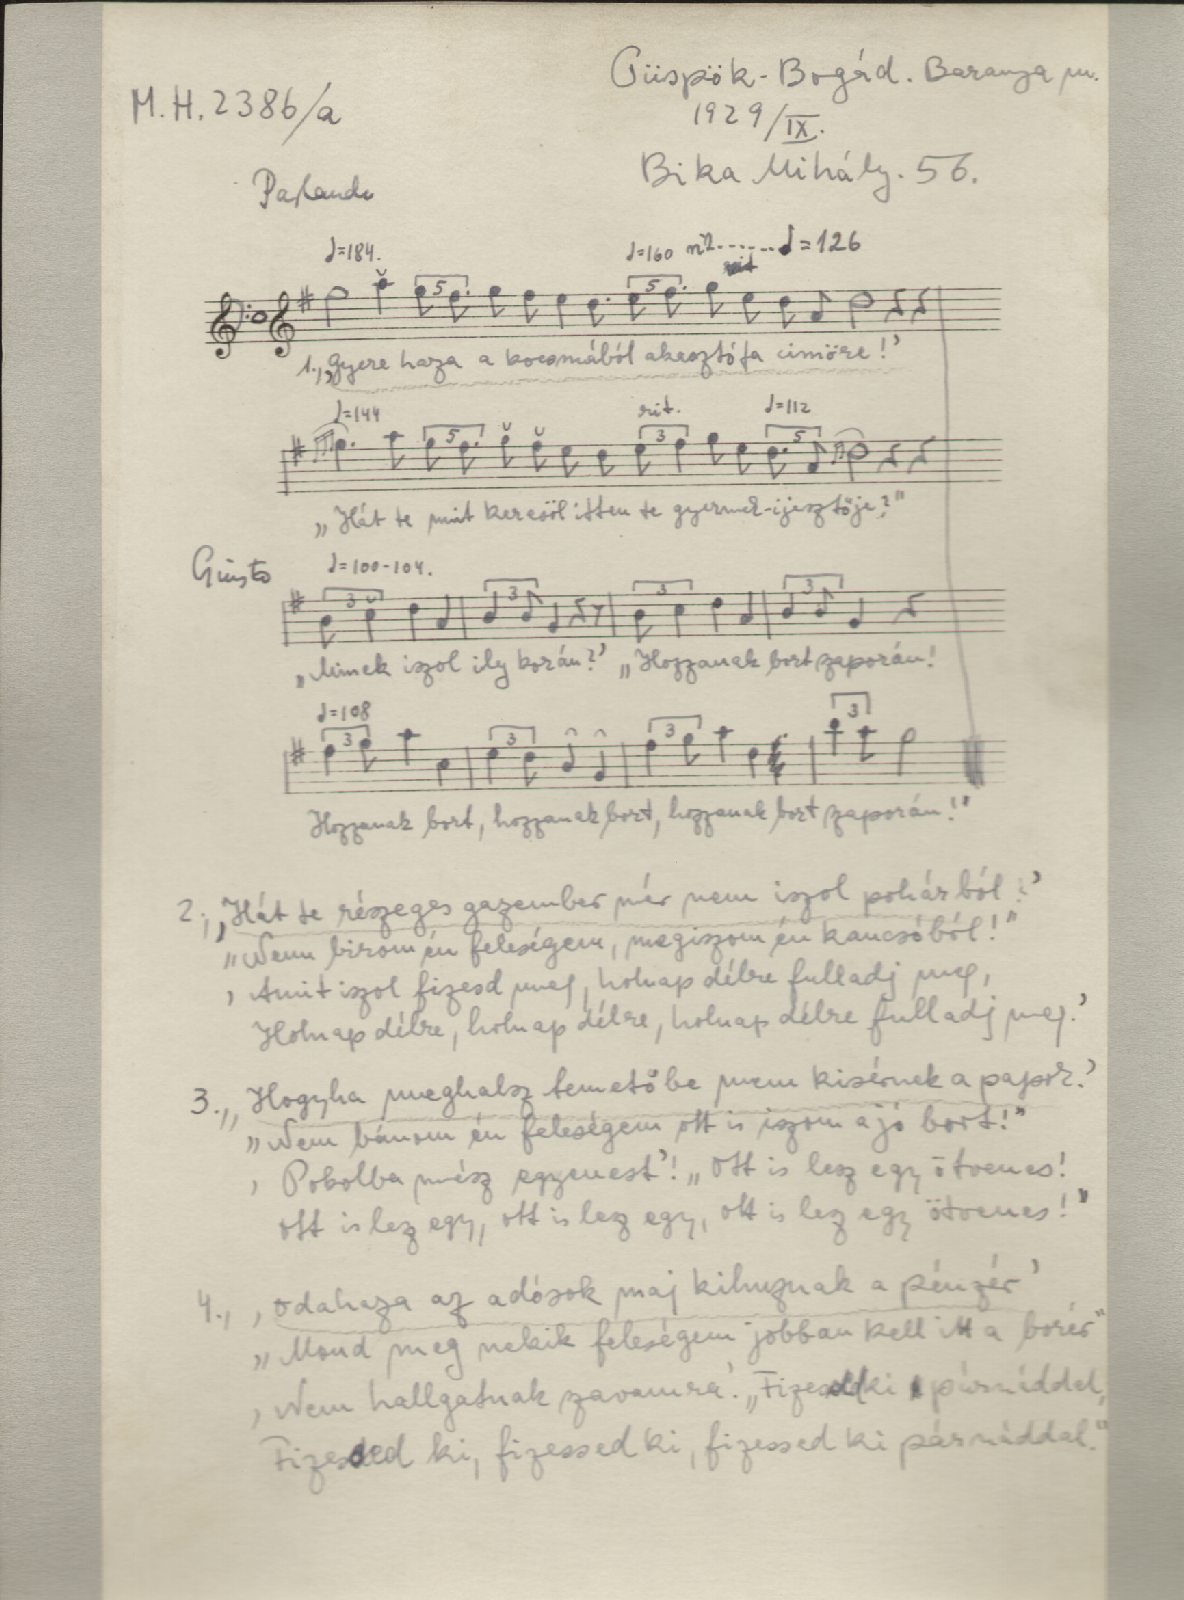 M.H. 2386/a
Püspök-Bogád. Baranya m.
1929/IX.
Bika Mihály. 56.
Parlando
♩=184. ♩=160 ♩=126
5 5
1., „Gyere haza a kocsmából akasztófa cimöre!’
♩=144 rit. ♩=112
5 3 5
„Hát te mint keresöl itten te gyermek-ijesztöje?"
Giusto ♩=100-104.
3 3 3 3
„Minek iszol ily korán?’ „Hozzanak bort zaporán!
♩=108
3 3 3 3
Hozzanak bort, hozzanak bort, hozzanak bort zaporán!"
2., ‚Hát te részeges gazember mér nem iszol pohárból?’
„Nem birom én feleségem, megiszom én kancsóból!"
‚Amit iszol fizesd meg, holnap délre fulladj meg,
Holnap délre, holnap délre, holnap délre fulladj meg.’
3., ‚Hogyha meghalsz temetőbe nem kisérnek a papok.’
„Nem bánom én feleségem ott is iszom a jó bort!"
‚Pokolba mész egyenest’! „Ott is lesz egy ötvenes!
Ott is lesz egy, ott is lesz egy, ott is lesz egy ötvenes!"
4., ‚Odahaza az adósok maj kihuznak a pénzér’
„Mond meg nekik feleségem jobban kell itt a borér"
‚Nem hallgatnak zavamra’. „Fizesd ki párnáddal,
Fizessed ki, fizessed ki, fizessed ki párnáddal."